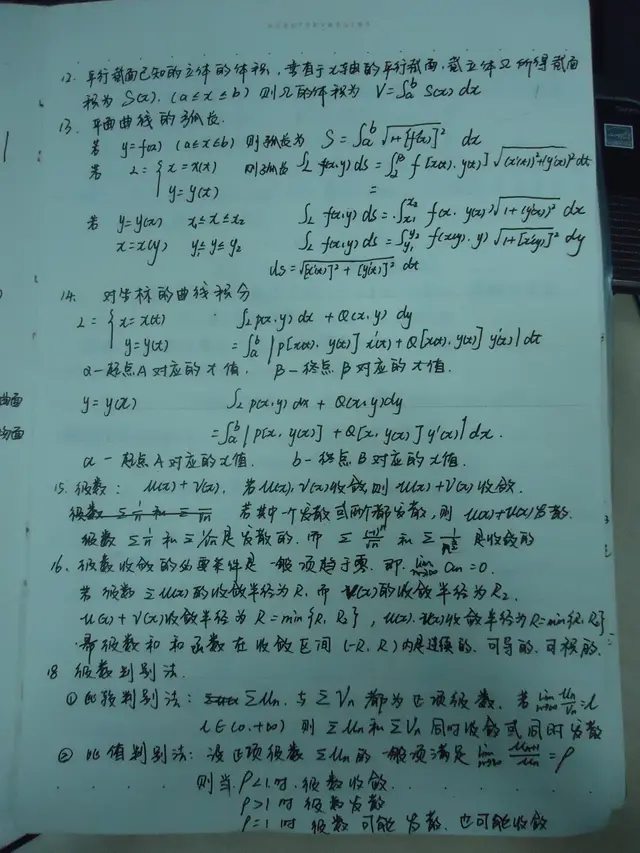 12. 平行截面已知的立体的体积, 垂直于x轴的平行截面, 截立体Ω所得截面
积为 S(x). (a≤x≤b) 则Ω的体积为 V=∫ₐᵇ S(x) dx
13. 平面曲线的弧长.
若 y=f(x) (a≤x≤b) 则弧长为 S=∫ₐᵇ √(1+[f'(x)]²) dx
若 L={ x=x(t) 则弧长 ∫_L f(x,y) ds = ∫_α^β f[x(t), y(t)] √((x'(t))²+(y'(t))²) dt
y=y(t) =
若 y=y(x) x₁≤x≤x₂ ∫_L f(x,y) ds = ∫_{x₁}^{x₂} f(x, y(x)) √(1+(y'(x))²) dx
x=x(y) y₁≤y≤y₂ ∫_L f(x,y) ds = ∫_{y₁}^{y₂} f(x(y), y) √(1+[x'(y)]²) dy
ds=√([x'(t)]²+[y'(t)]²) dt
14. 对坐标的曲线积分
L={ x=x(t) ∫_L p(x,y) dx + Q(x,y) dy
y=y(t) =∫ₐᵇ |p[x(t), y(t)] x'(t)+Q[x(t), y(t)] y'(t)| dt
α-起点A对应的t值. β-终点B对应的t值.
曲面
y=y(x) ∫_L p(x,y) dx + Q(x,y)dy
曲面
=∫ₐᵇ |p[x, y(x)] + Q[x, y(x)] y'(x)| dx.
a-起点A对应的x值. b-终点B对应的x值.
15. 级数: u(x)+v(x), 若u(x), v(x)收敛, 则 u(x)+v(x) 收敛.
级数 Σ 1/n 和 Σ 1/√n 若其中一个发散或两个都发散, 则 u(x)+v(x)发散.
级数 Σ 1/n 和 Σ 1/√n 是发散的. 而 Σ (-1)ⁿ/√n 和 Σ 1/n² 是收敛的
16. 级数收敛的必要条件是一般项趋于零. 即. lim n→∞ aₙ=0.
若级数 Σu(x)的收敛半径为R, 而 v(x)的收敛半径为R₂.
u(x)+v(x)收敛半径为 R=min{R, R₂}, u(x). v(x)收敛半径为R=min{R, R₂}
幂级数和和函数在收敛区间(-R, R)内是连续的. 可导的. 可积的.
18 级数判别法.
① 比较判别法: Σuₙ. 与 ΣVₙ 都为正项级数. 若 lim n→∞ uₙ/Vₙ=l
l∈(0,+∞) 则 Σuₙ和ΣVₙ同时收敛或同时发散
② 比值判别法: 设正项级数Σuₙ的一般项满足 lim n→∞ uₙ₊₁/uₙ=ρ
则当 ρ<1时. 级数收敛.
ρ>1时 级数发散
ρ=1时 级数可能发散. 也可能收敛